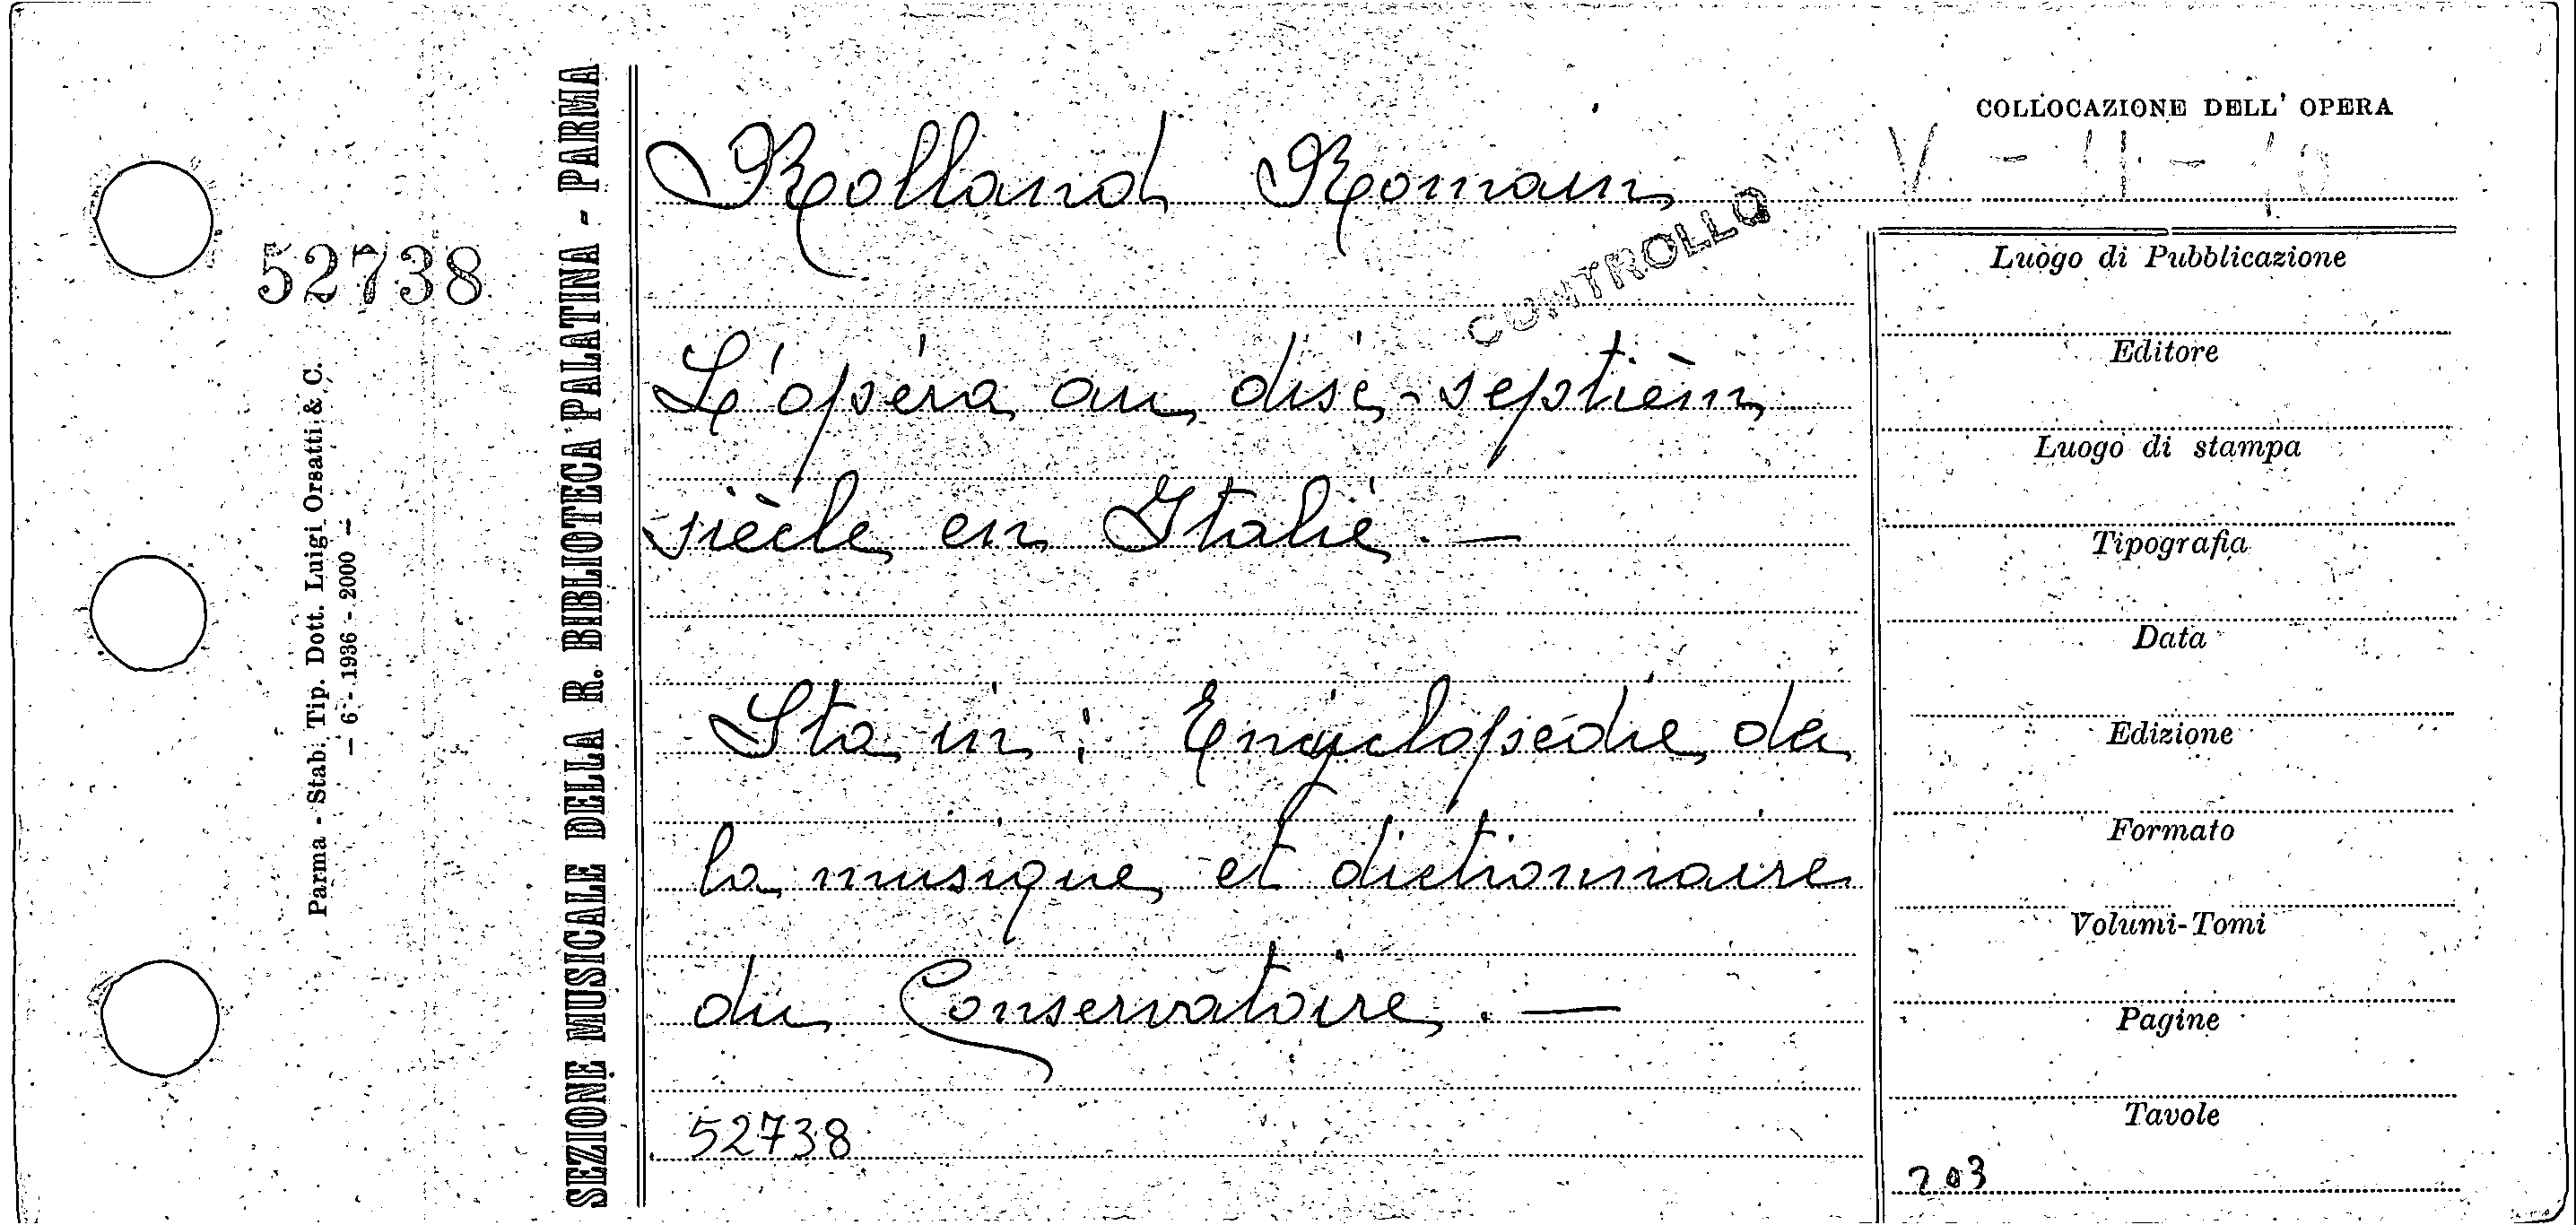 52738
Parma - Stab. Tip. Dott. Luigi Orsatti & C.
— 6 - 1936 - 2000 —
SEZIONE MUSICALE DELLA R. BIBLIOTECA PALATINA - PARMA
Rolland Romain
CONTROLLO
L'opéra au dise-septièm
siècle en Italie. —
Sta in: Encyclopédie de
la musique et dictionnaire
du Conservatoire. —
52738
COLLOCAZIONE DELL' OPERA
V - 4 - 10
Luogo di Pubblicazione
Editore
Luogo di stampa
Tipografia
Data
Edizione
Formato
Volumi-Tomi
Pagine
Tavole
203